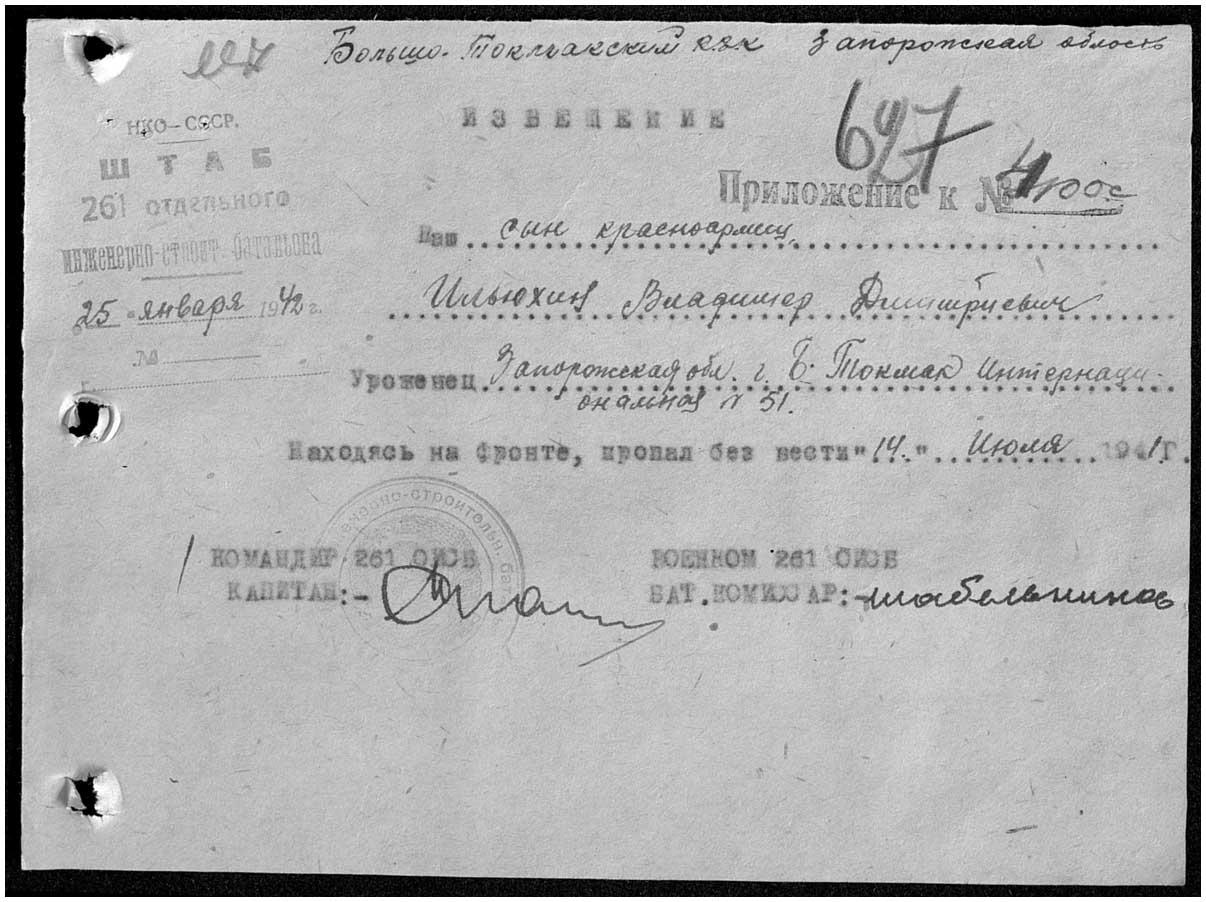 Больше-Токмакский рвк Запорожская область
627
НКО–СССР.
ШТАБ
261 отдельного
инженерно-строит. батальона
25 января 1942 г.
№
г.
ИЗВЕЩЕНИЕ
Приложение к №
Ваш сын красноармец
Ильюхин Владимир Дмитриевич
Уроженец Запорожская обл. г. Б. Токмак Интернаци-
ональная № 51.
Находясь на фронте, пропал без вести "14." Июля 1941 г.
КОМАНДИР 261 ОИСБ
КАПИТАН:-
ВОЕНКОМ 261 ОИСБ
БАТ.КОМИССАР:- Шабельников